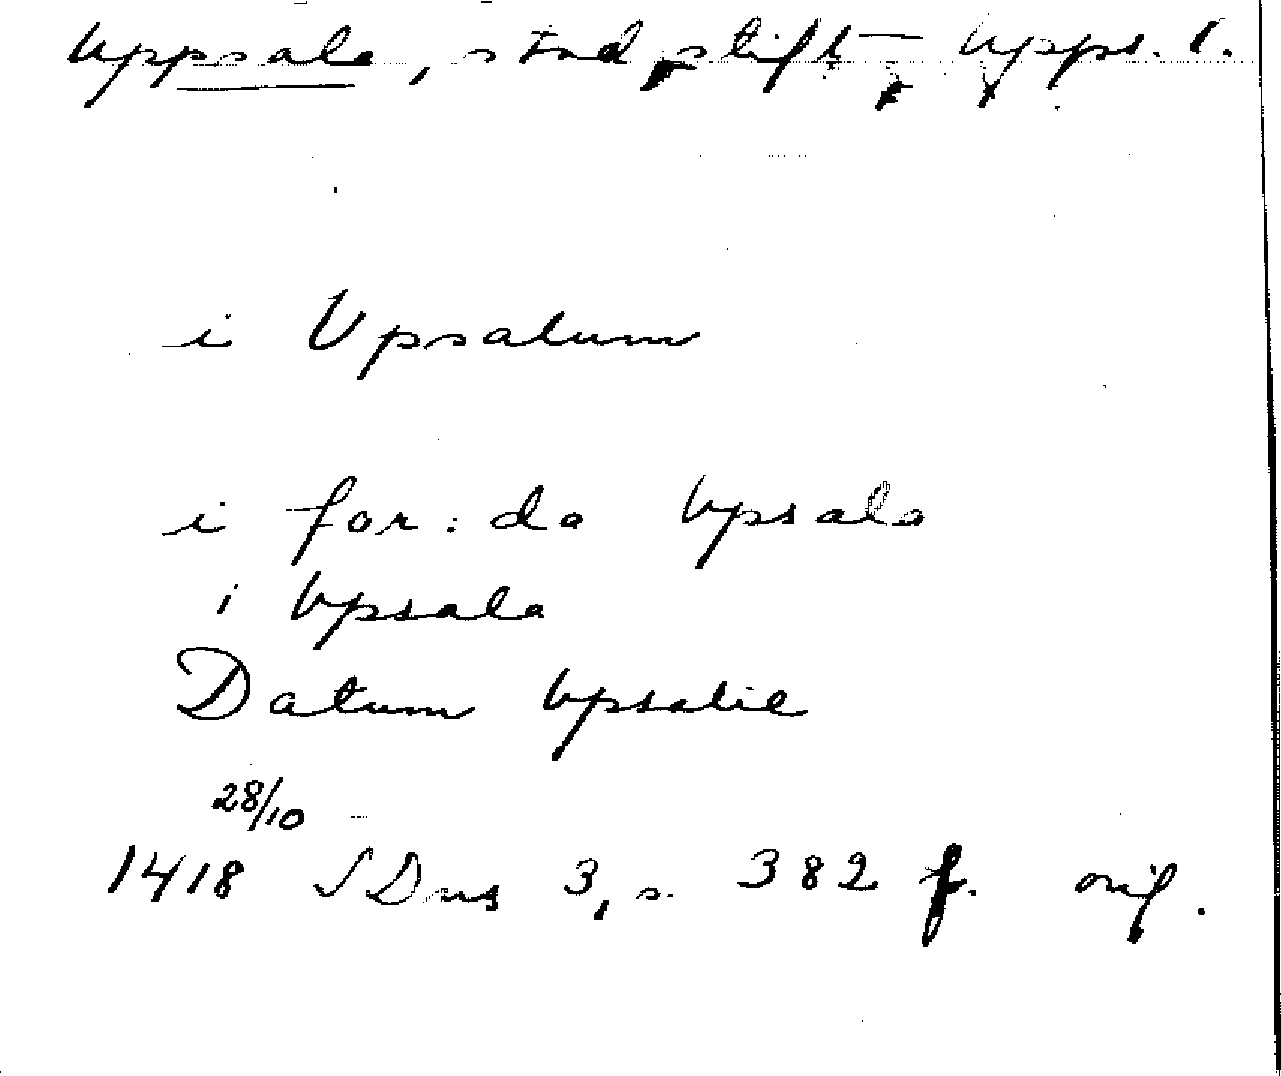 Uppsala, stad, stift, Upps. l.
i Upsalum
i for: da Upsala
i Upsala
Datum Upsalie
28/10
1418 SDns 3, s. 382 f. orig.